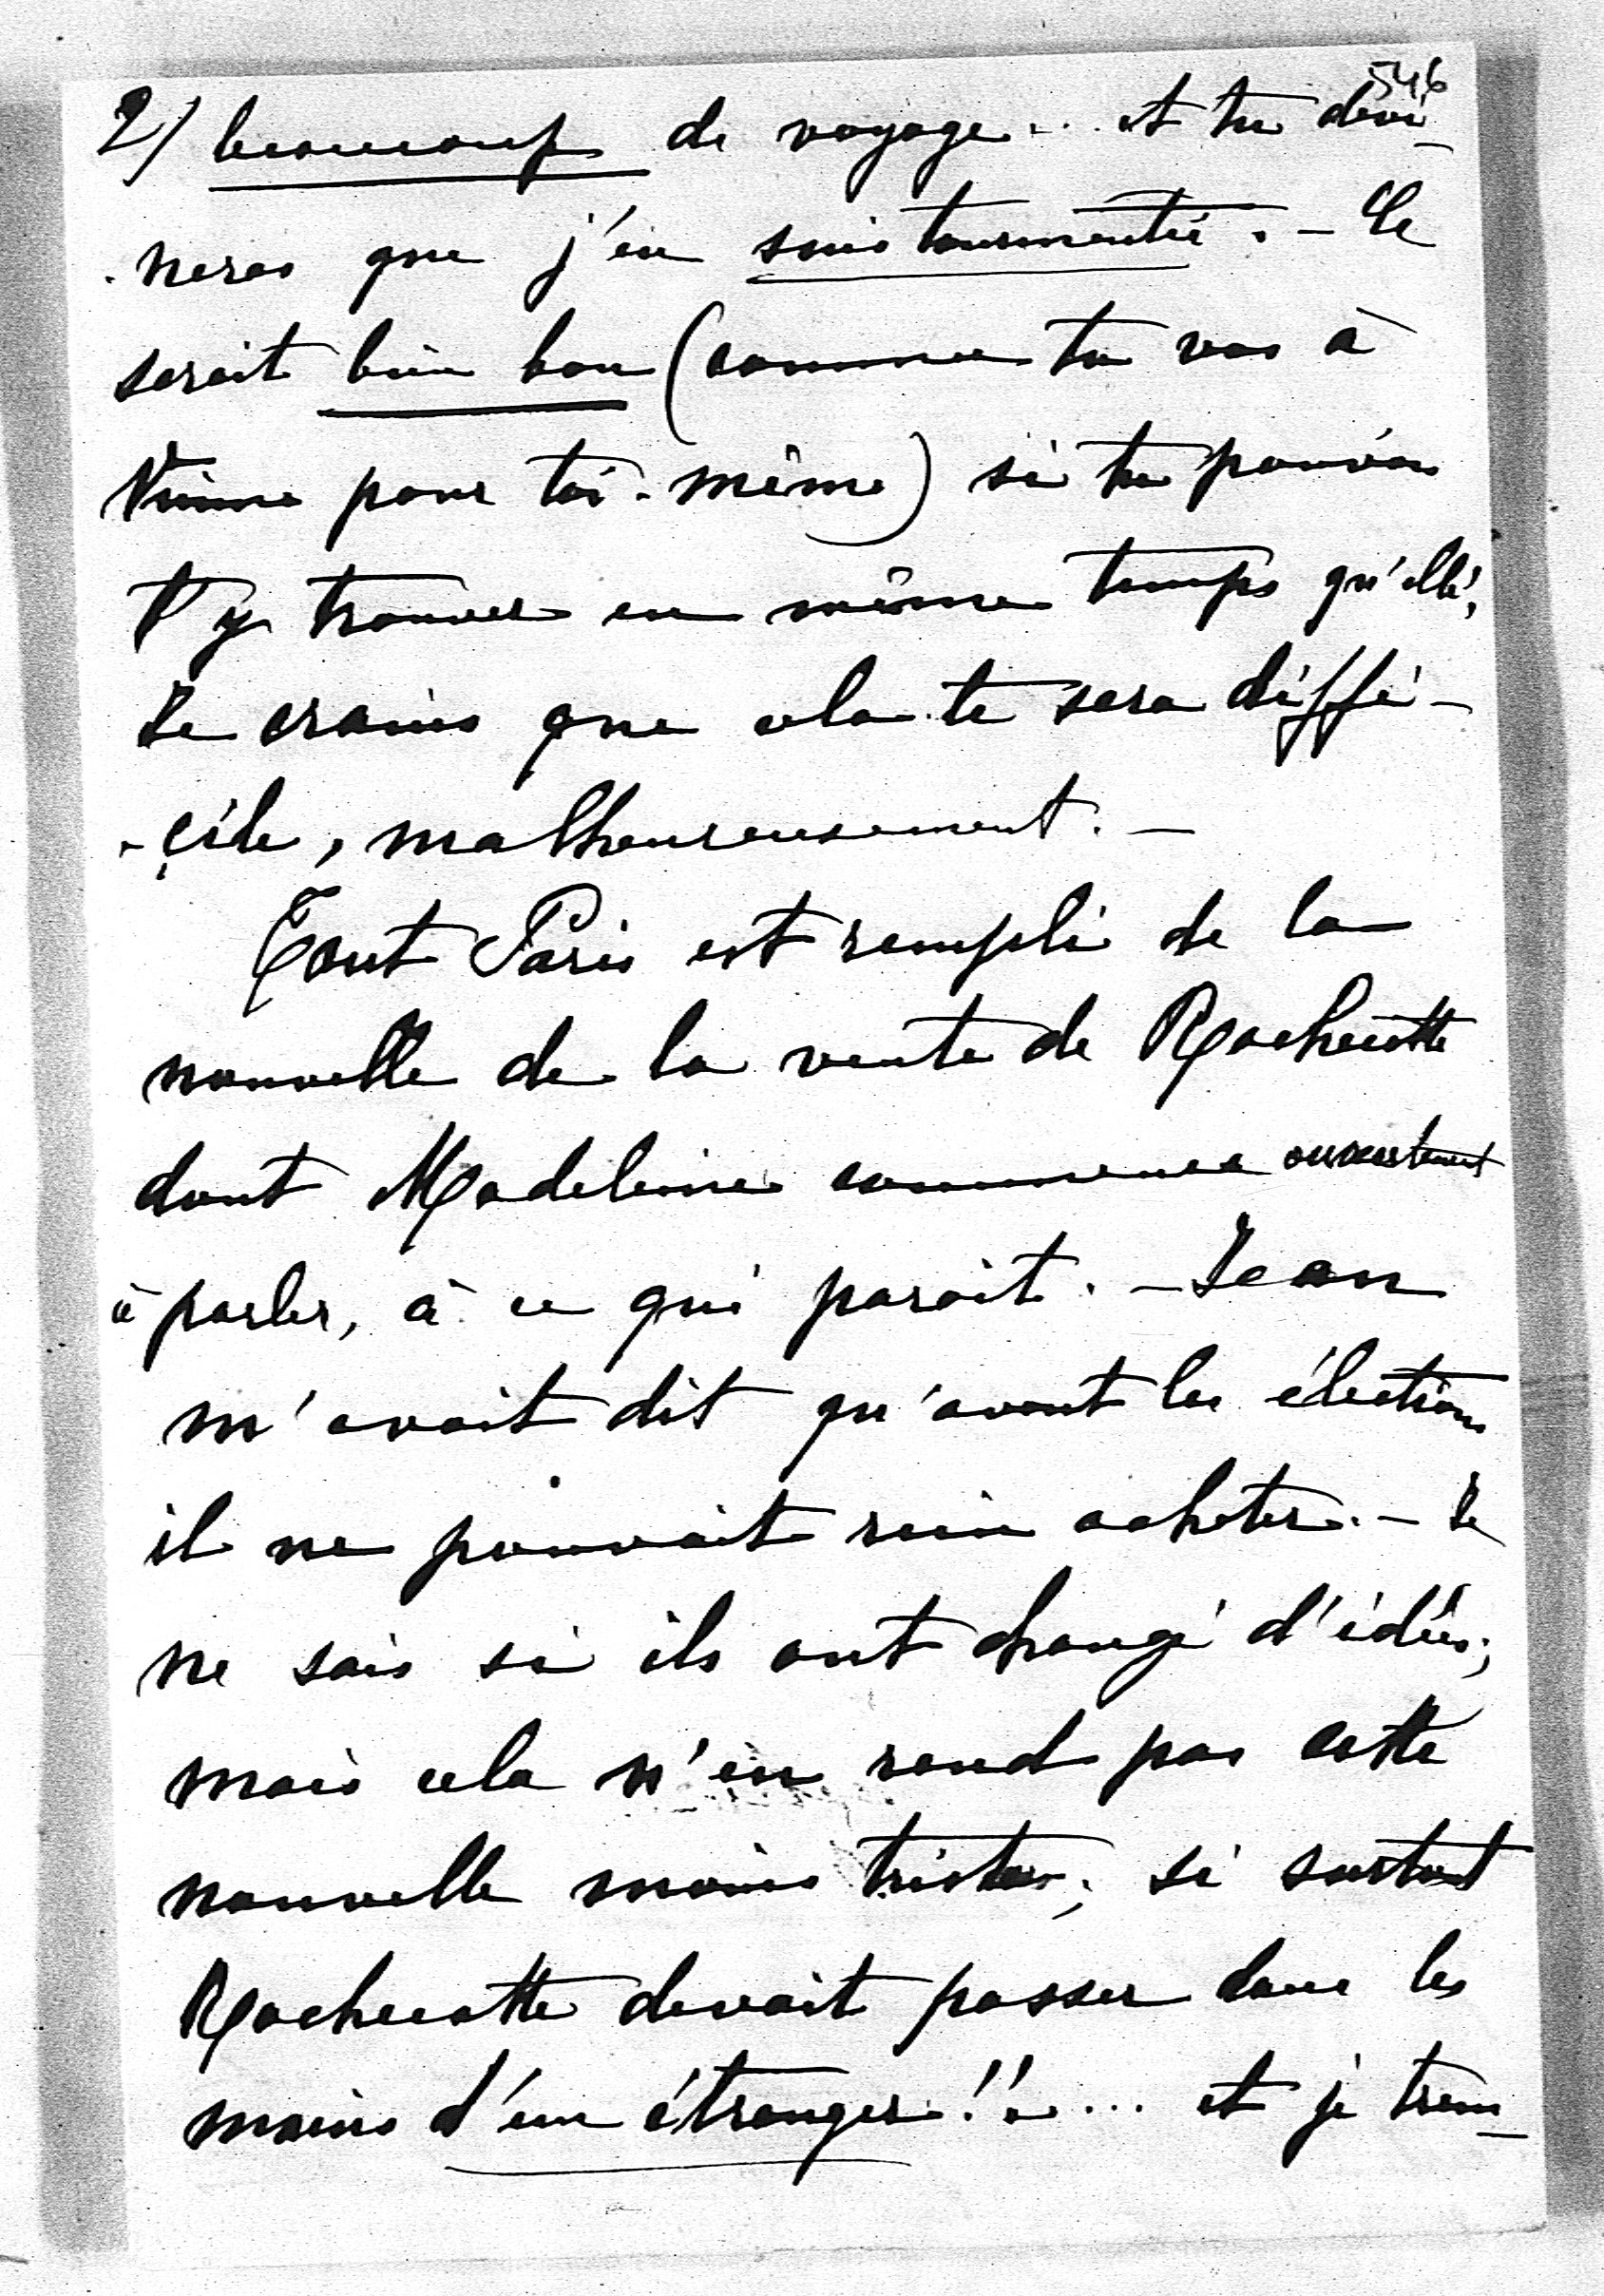 546
2) beaucoup de voyage... et tu devi-
-neras que j'en suis tourmentée. - Ce
serait bien bon (comme tu vas à
Vienne pour toi-même) si tu pouvais
t'y trouver en même temps qu'elle,
Je crains que cela te sera diffi-
-cile, malheureusement. -
Tout Paris est rempli de la
nouvelle de la vente de Rochecotte
dont Madeleine commence ouvertement
à parler, à ce qui paraît. - Jean
m'avait dit qu'avant les élections
il ne pouvait rien acheter. - Je
ne sais si ils ont changé d'idées;
mais cela n'en rend pas cette
nouvelle moins triste; si surtout
Rochecotte devait passer dans les
mains d'un étranger!!... et je trem-